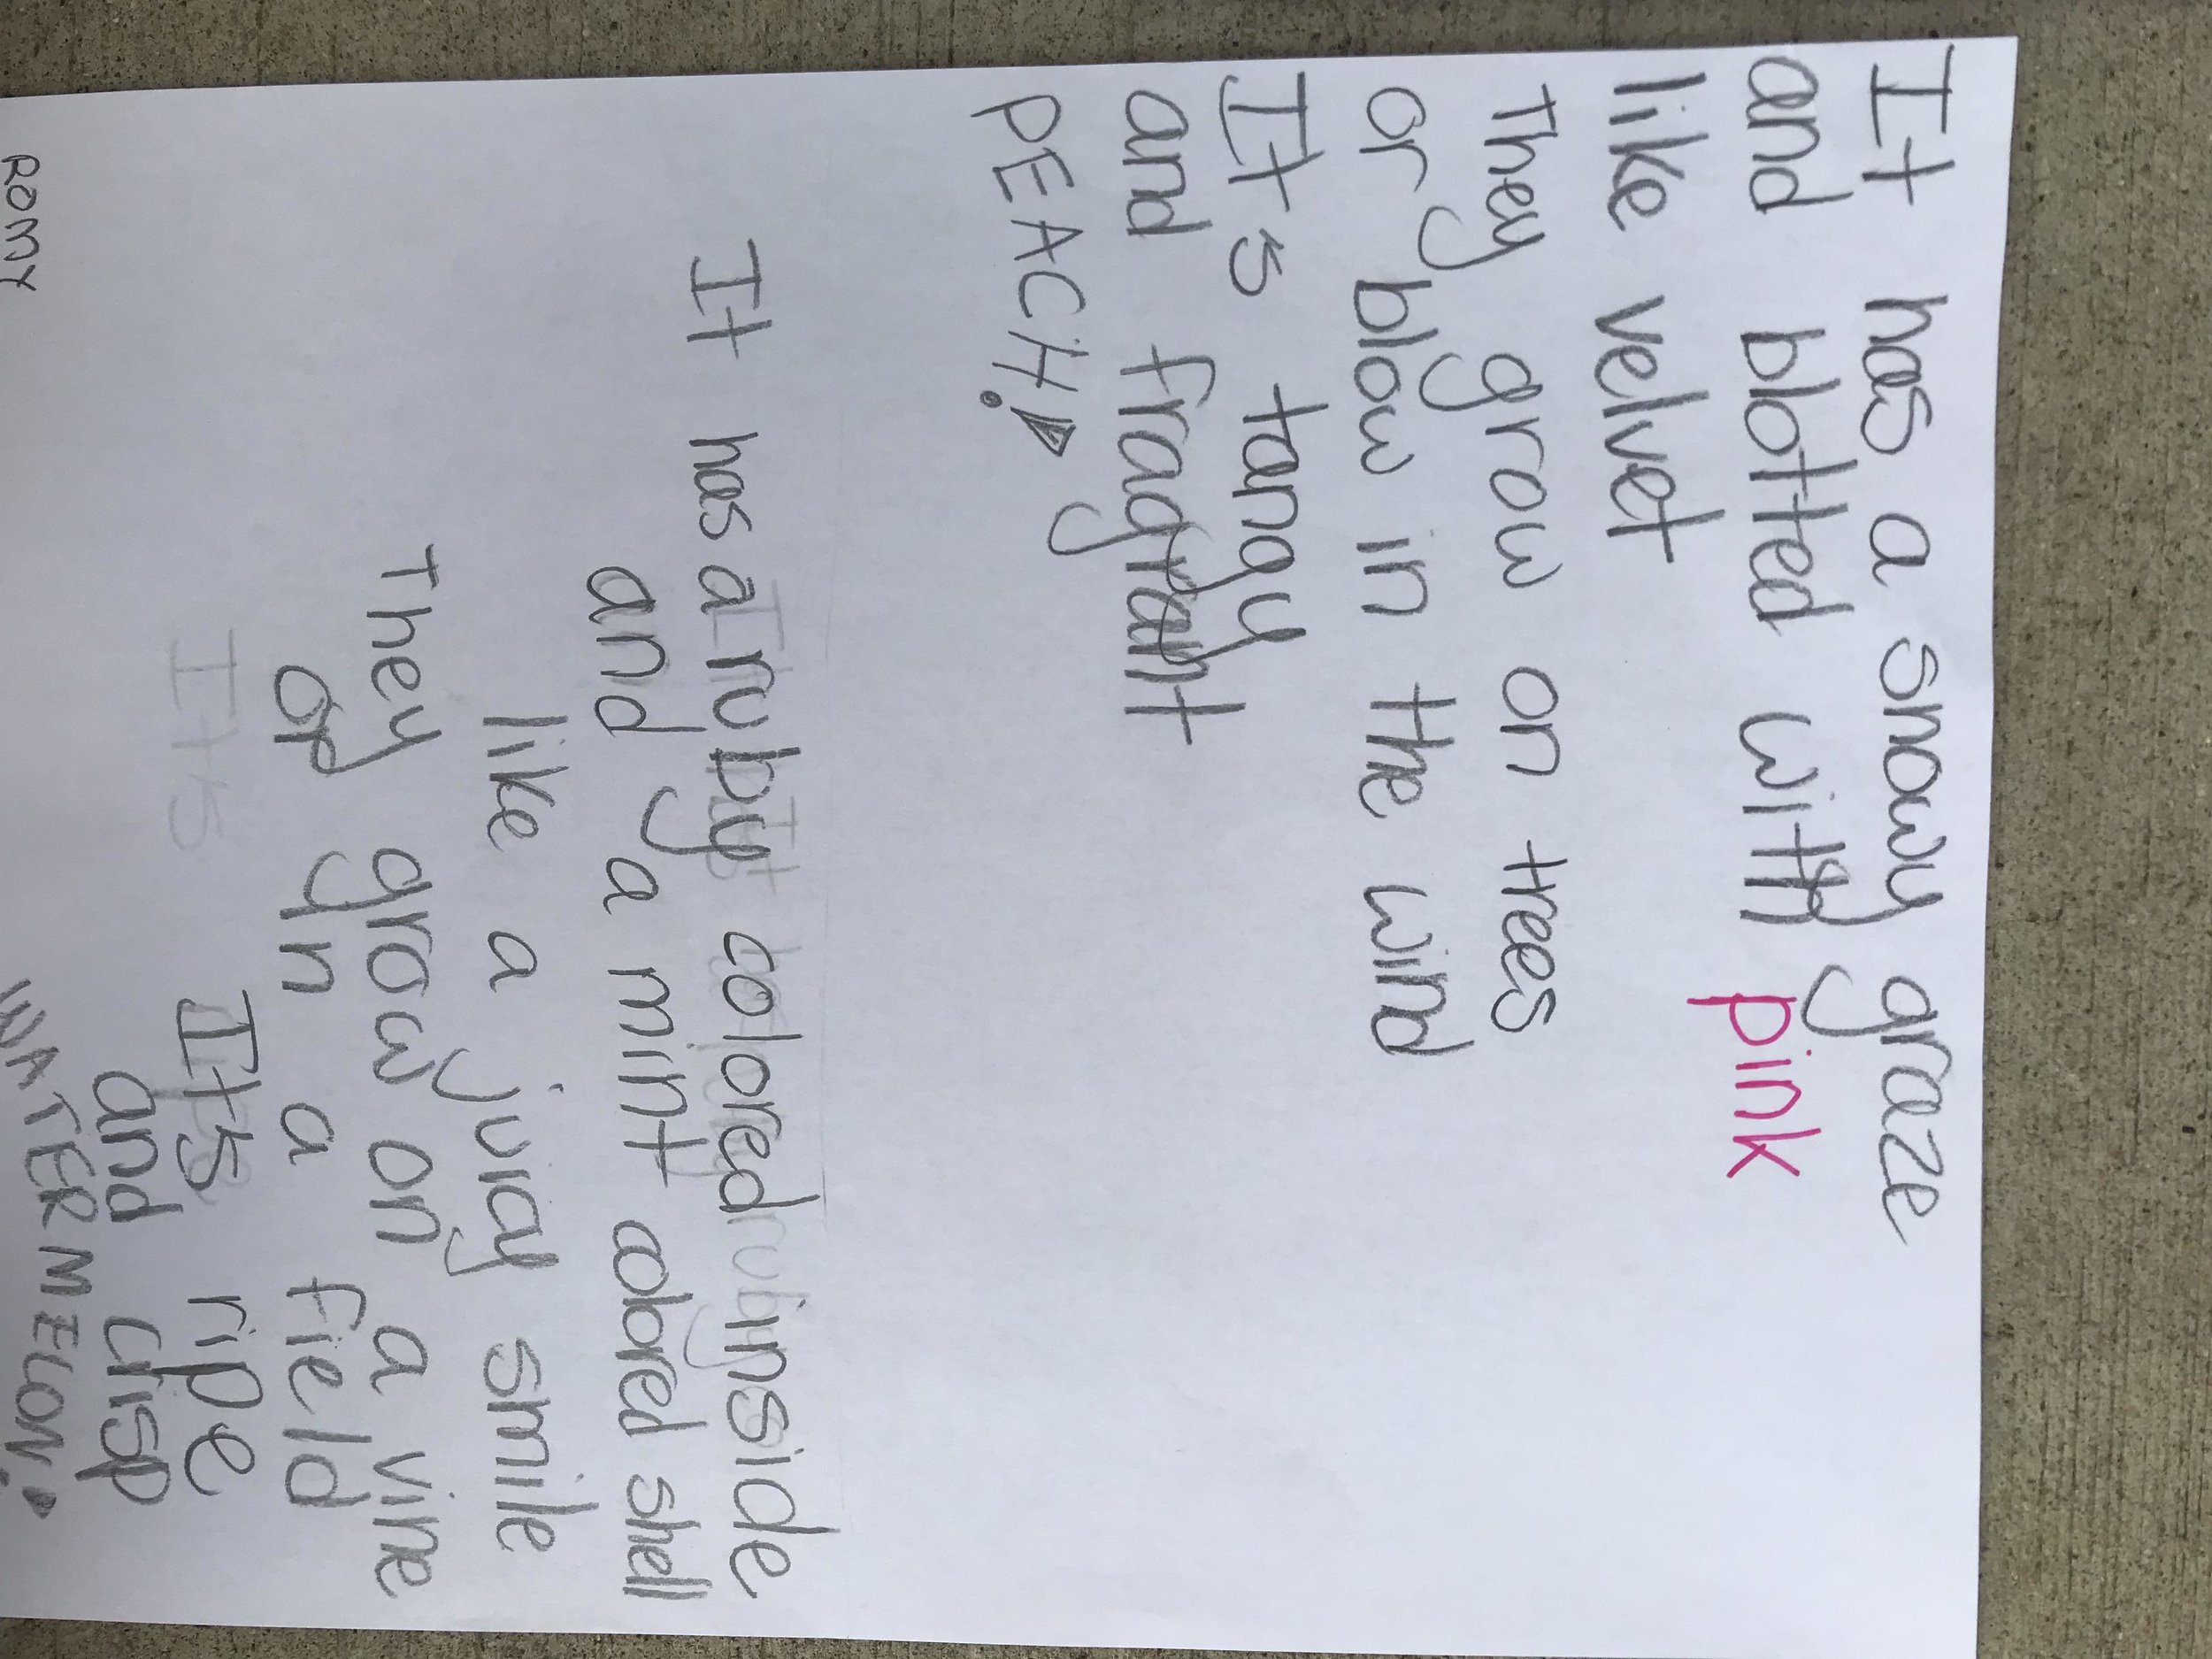 It has a snowy graze
and blotted with pink
like velvet
They grow on trees
or blow in the wind
Its tangy
and fragrant
PEACH!
It has a ruby colored inside
and a mint colored shell
like a juicy smile
They grow on a vine
or in a field
Its ripe
and crisp
WATERMELON!
ROMY